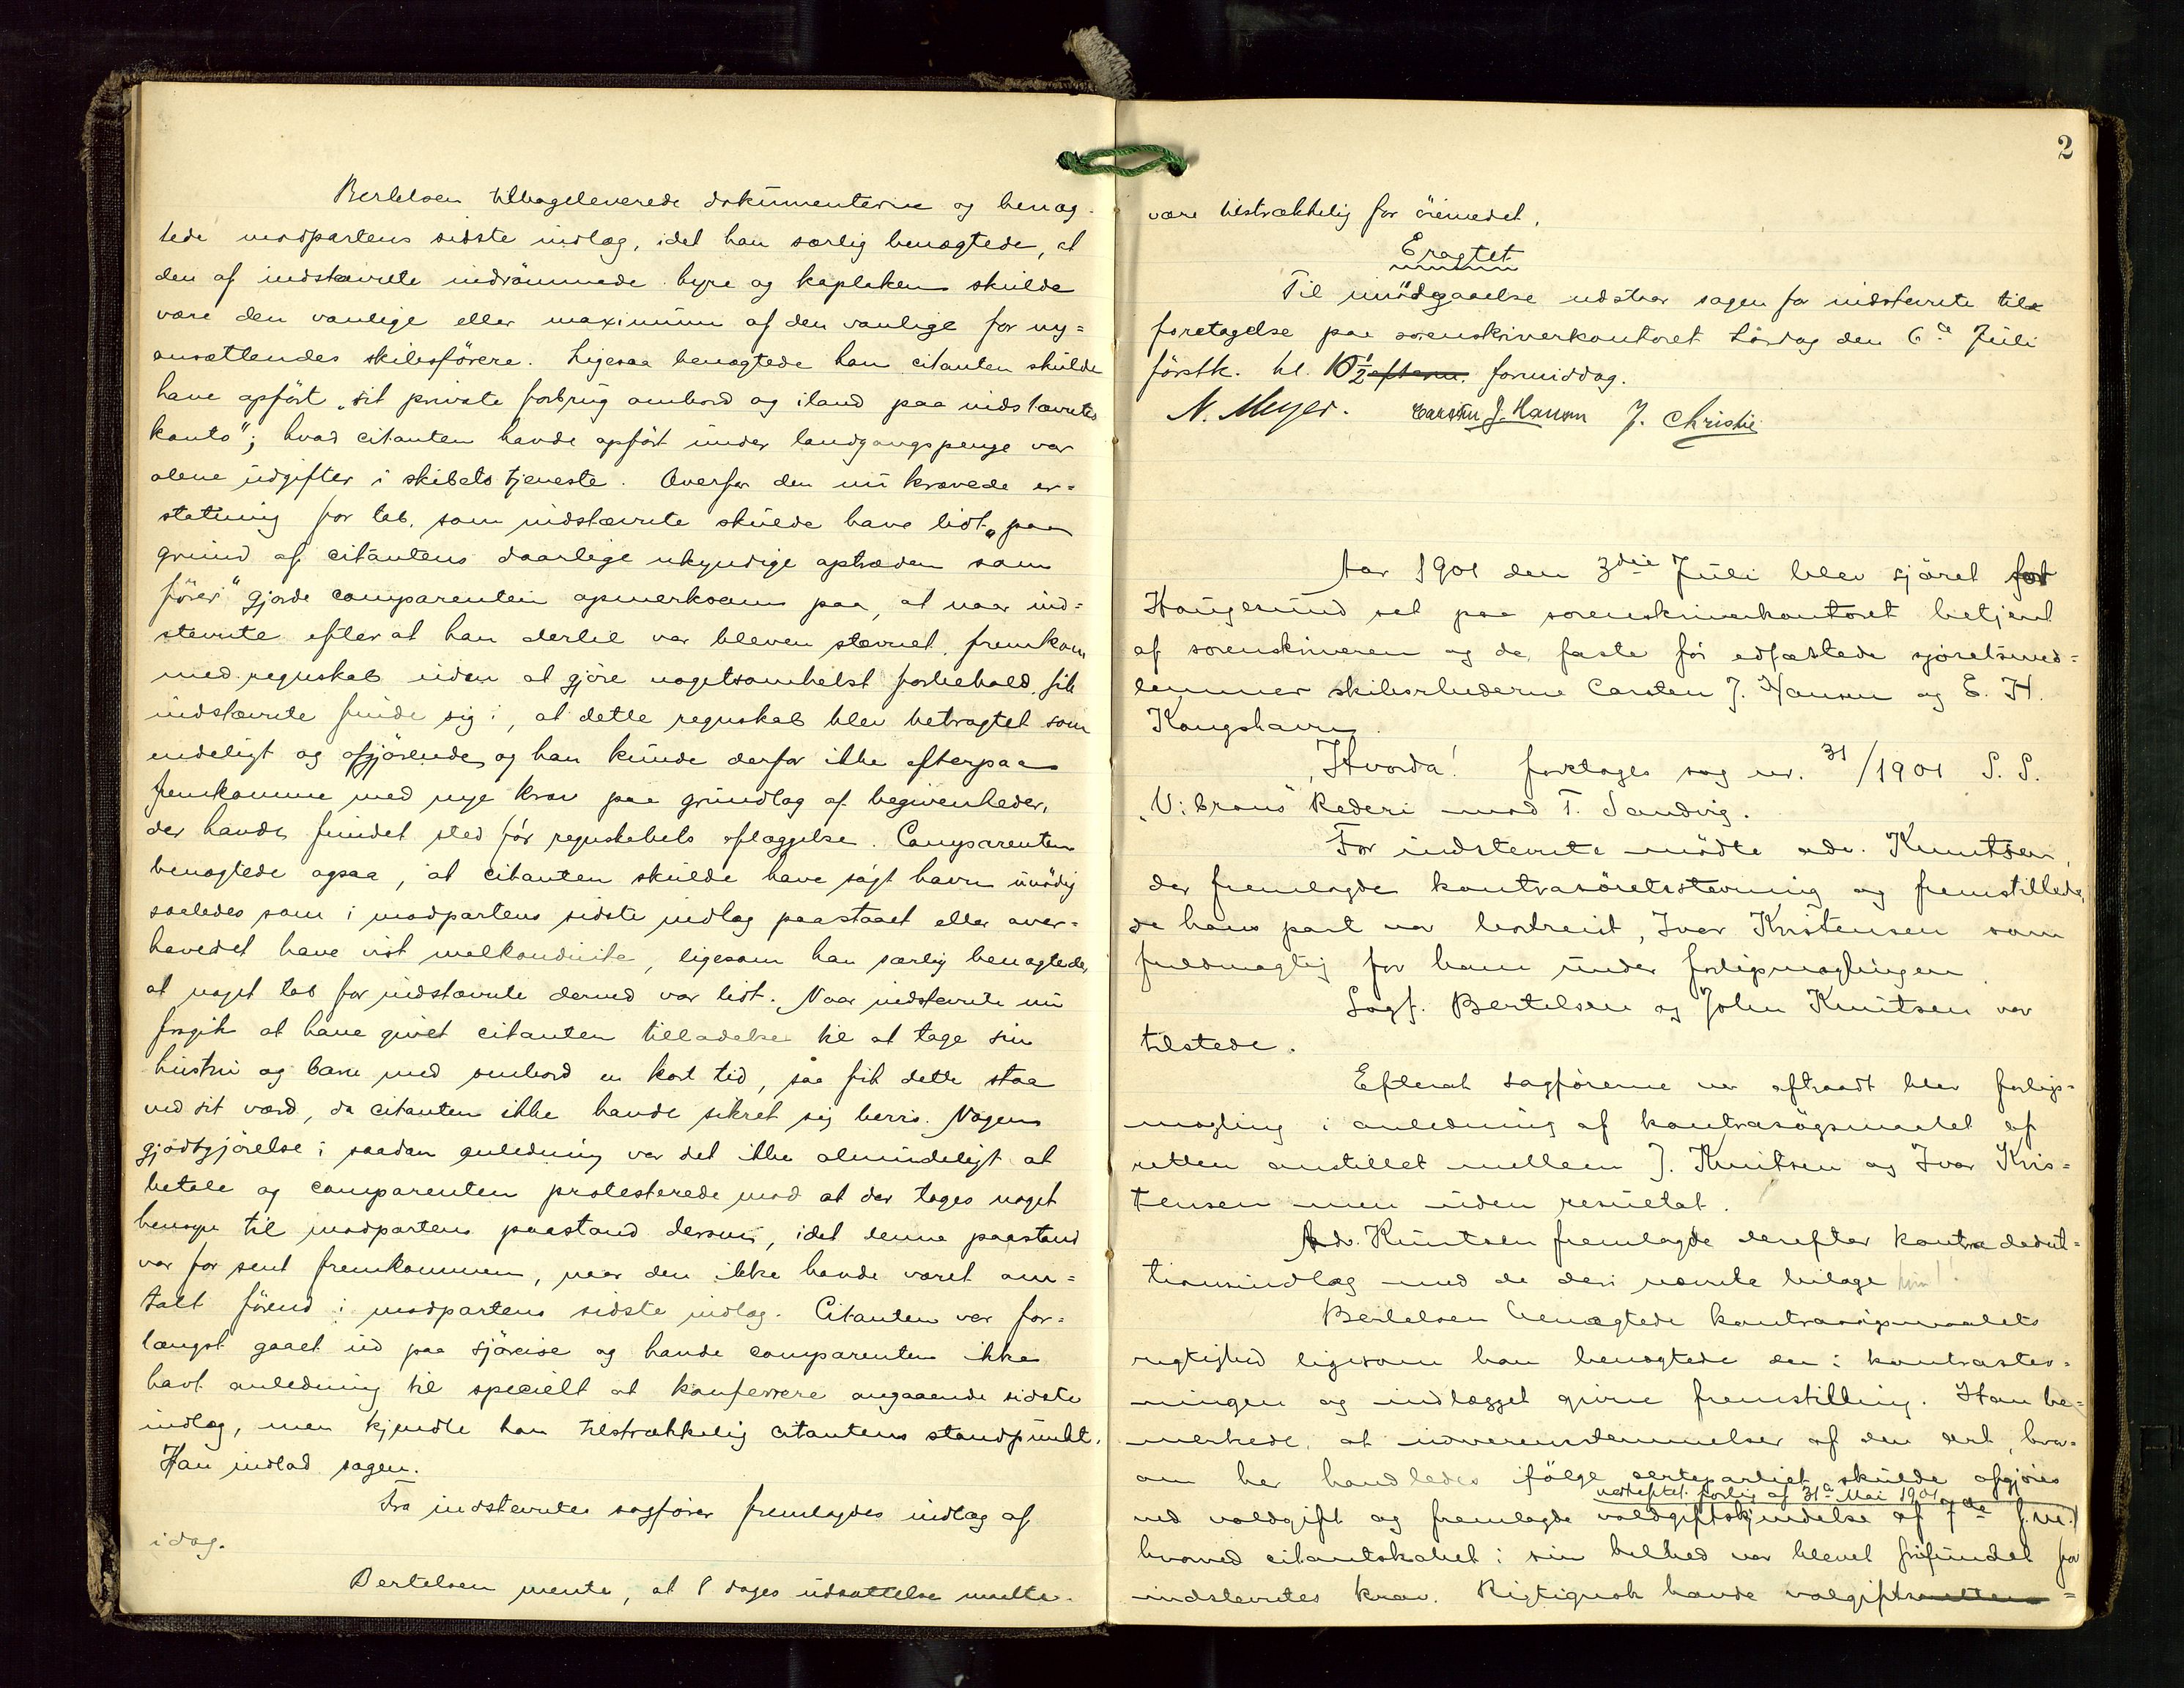 Bertelsen tilbageleverede dokumenterne og benæg-
tede modpartens sidste indlæg, idet han særlig benægtede, at
den af indstævnte indrömmede hyre og kaplaken skulde
være den vanlige eller maximum af den vanlige for ny=
ansættendes skibsförere. Ligesaa benægtede han citanten skulde
have opfört "sit private forbrug ombord og iland paa indstævntes
konto"; hvad citanten havde opfört under landgangspenge var
alene udgifter i skibets tjeneste. Overfor den nu krævede er=
statning for tab, som indstævnte skulde have lidt "paa
grund af citantens daarlige ukyndige optræden som
förer" gjorde comparenten opmerksom paa, at naar ind=
stevnte efter at han dertil var bleven stævnet, fremkom
med regnskab uden at gjöre nogetsomhelst forbehold, fik
indstævnte finde sig i, at dette regnskab blev betragtet som
endeligt og afgjörende, og han kunde derfor ikke efterpaa
fremkomme med nye krav paa grundlag af begivenheder,
der havde fundet sted för regnskabets aflæggelse. Comparenten
benægtede ogsaa, at citanten skulde have sögt havn unödig
saaledes som i modpartens sidste indlæg paastaaet eller over=
hovedet have vist malkonduite, ligesom han særlig benægtede,
at noget tab for indstævnte derved var lidt. Naar indstevnte nu
fragik at have givet citanten tilladelse til at tage sin
hustru og barn med ombord en kort tid, saa fik dette staa
ved sit værd, da citanten ikke havde sikret sig bevis. Nogen
gjödtgjörelse i saadan anledning var det ikke almindeligt at
betale og comparenten protesterede mod at der toges noget
hensyn til modpartens paastand derom, idet denne paastand
var for sent fremkommen, naar den ikke havde været om=
talt förend i modpartens sidste indlæg. Citanten var for=
længst gaaet ud paa sjöreise og havde comparenten ikke
havt anledning til specielt at konferere angaaende sidste
indlæg, men kjendte han tilstrækkelig citantens standpunkt.
Han indlod sagen.
Fra indstevntes sagförer fremlagdes indlæg af
idag.
Bertelsen mente, at 8 dages udsættelse maatte
2
være tilstrækkelig for öiemedet.
Eragtet
Til imödegaaelse udstaar sagen for indstevnte til
foretagelse paa sorenskriverkontoret Lördag den 6te Juli
förstk. kl. 10 1/2 efterm. formiddag.
N. Meyer. Carsten J. Hansen J. Christie
Aar 1901 den 3die Juli blev sjöret for
Haugesund sat paa sorenskriverkontoret betjent
af sorenskriveren og de faste för edfæstede sjöretsmed=
lemmer skibsrhederne Carsten J. Hansen og E. H.
Kongshavn.
Hvorda! foretages sag nr. 31/1901 S. S.
"Vibrans" Rederi mod T. Sandvig.
For indstevnte mödte adv. Knutsen,
der fremlagde kontrasöretsstevning og fremstillede,
da hans part var bortreist, Ivar Kristensen som
fuldmægtig for ham under forligsmæglingen
Sagf. Bertelsen og John Knutsen var
tilstede.
Efterat sagförerne var aftraadt blev forligs=
mægling i anledning af kontrasögsmaalet af
retten anstillet mellem J. Knutsen og Ivar Kris=
tensen men uden resultat.
Adv. Knutsen fremlagde derefter kontradeduk=
tionsindlæg med de deri nævnte bilage
Bertelsen benægtede kontrasögsmaalets
rigtighed ligesom han benægtede den i kontrastev=
ningen og indlægget givne fremstilling. Han be=
merkede, at uoverensstemmelser af den art, hvor=
om her handledes ifölge certepartiet skulde afgjöres
vedheftet forlig af 31te Mai 1901 og
ved voldgift og fremlagde voldgiftskjendelse af 7de f.m.
hvorved citantskabet i sin helhed var blevet frifundet for
indstevntes krav. Rigtignok havde volgiftsretten =